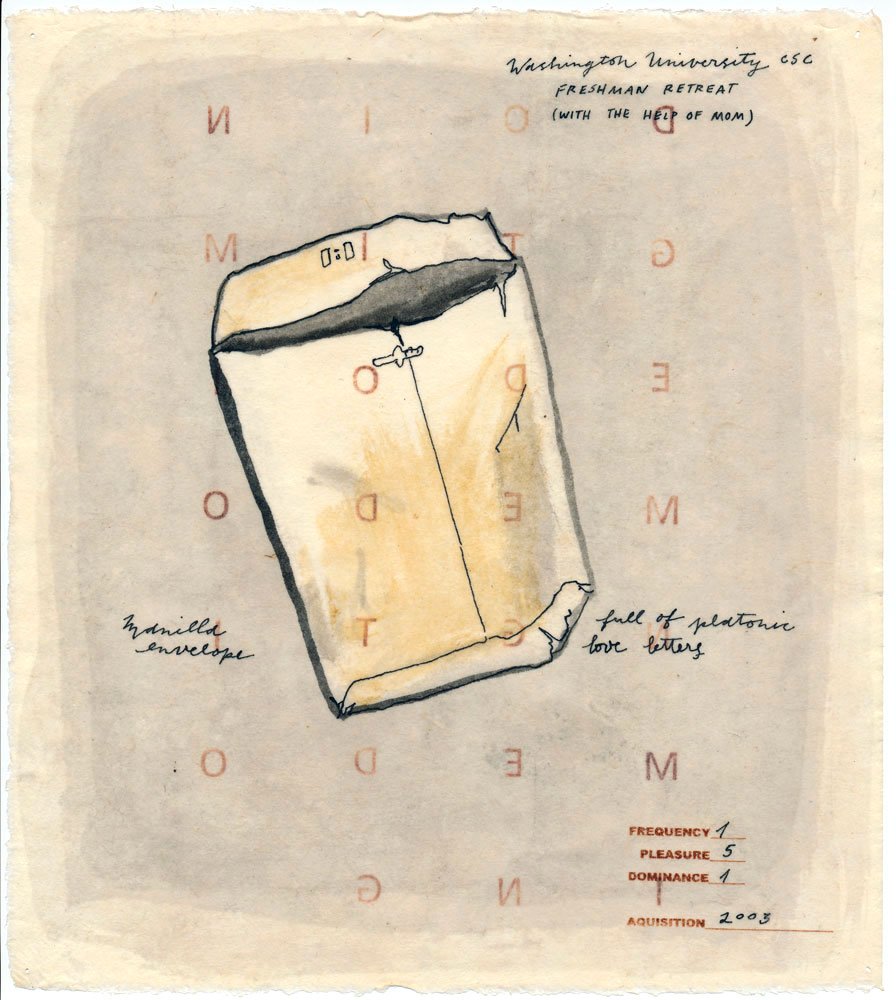 Washington University CSC
FRESHMAN RETREAT
(WITH THE HELP OF MOM)
N I O D
M I T G
O D E
O D E M
Manilla
envelope
full of platonic
love letters
I T G I
O D E M
G N I
FREQUENCY 1
PLEASURE 5
DOMINANCE 1
AQUISITION 2003